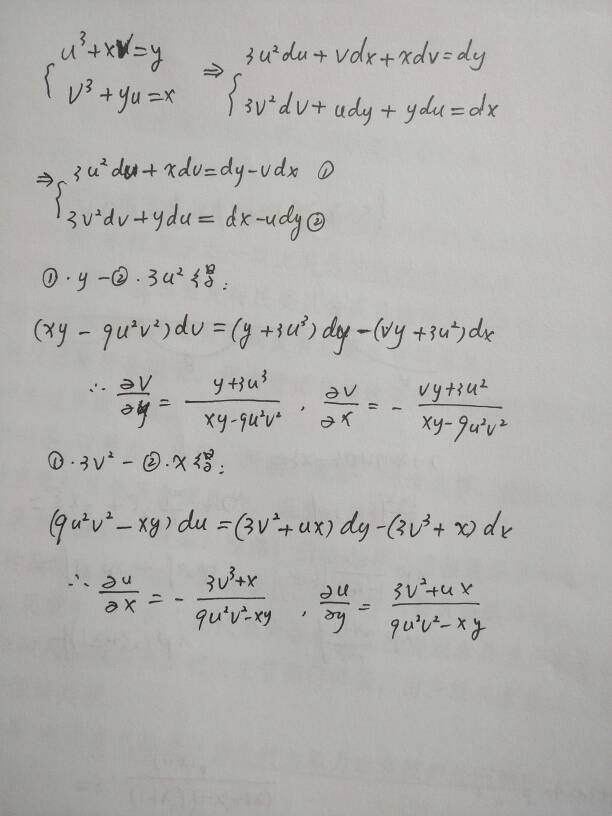 { u³+xv=y ⇒ { 3u²du+vdx+xdv=dy
v³+yu=x 3v²dv+udy+ydu=dx
⇒ { 3u²du+xdv=dy-vdx ①
3v²dv+ydu=dx-udy ②
①·y-②·3u²得:
(xy-9u²v²)dv=(y+3u³)dy-(vy+3u²)dx
∴ ∂v/∂y = (y+3u³)/(xy-9u²v²) , ∂v/∂x = - (vy+3u²)/(xy-9u²v²)
①·3v²-②·x得:
(9u²v²-xy)du=(3v²+ux)dy-(3v³+x)dx
∴ ∂u/∂x = - (3v³+x)/(9u²v²-xy) , ∂u/∂y = (3v²+ux)/(9u²v²-xy)